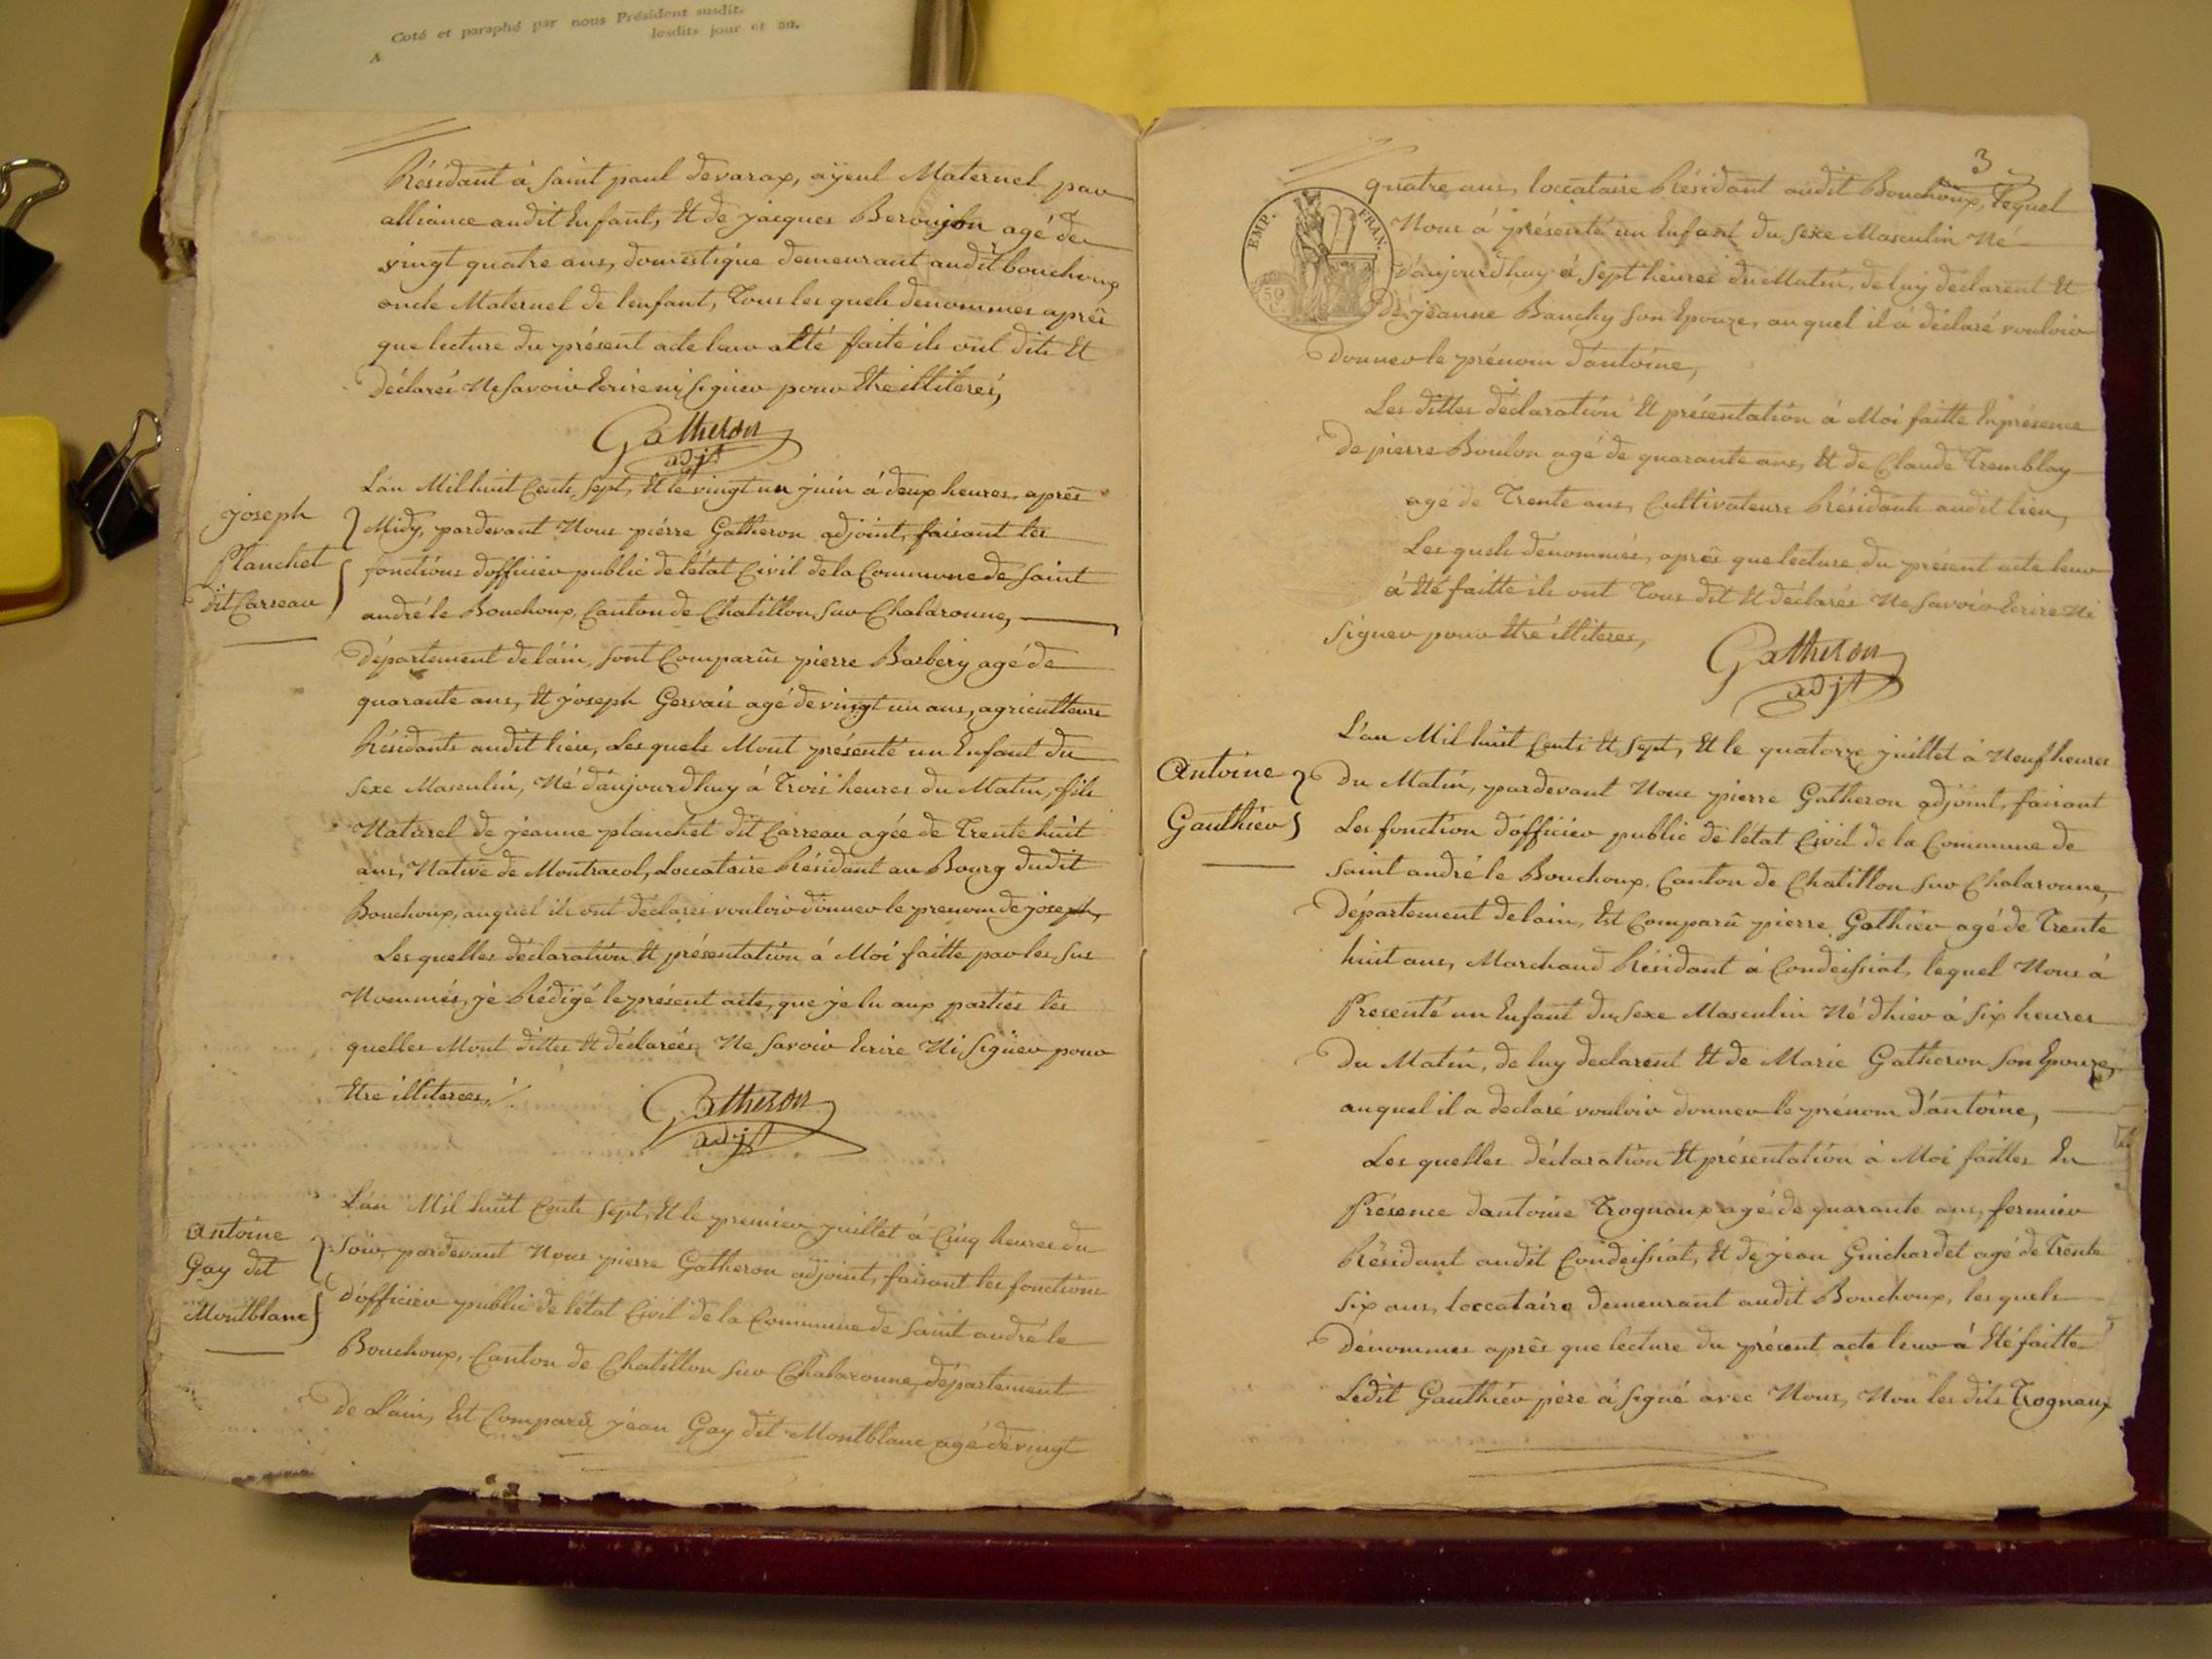 Coté et paraphé par nous Président susdit.
lesdits jour et an.
A
Résidant à Saint paul devarax, ayeul Maternel par
alliance audit Enfant, Et de jacques Beroujon agé de
vingt quatre ans, domestique demeurant audit bouchoux
oncle Maternel de lenfant, Tous les quels denommes après
que lecture du présent acte leur atté faite ils ont dits Et
déclarés Ne Savoir Ecrire ni Signer pour Etre illiterés,
Gatheron
adjt
Joseph
Planchet
dit Carreau
Lan Mil huit Cents Sept, Et le vingt un juin à deux heures après
Midy, pardevant Nous piérre Gatheron adjoint, faisant les
fonctions dofficier public de létat Civil de la Commune de Saint
andré le Bouchoux, Canton de Chatillon Sur Chalaronne,
Département de láin, sont Comparûs pierre Barbery agé de
quarante ans, Et joseph Gervais agé de vingt un ans, agriculteurs
Résidants audit lieu, Les quels Mont présenté un Enfant du
Sexe Masculin, Né daujourdhuy à Trois heures du Matin, fils
Naturel de jeanne planchet dit Carreau agée de Trente huit
ans, Native de Montracol, Loccataire Résidant au Bourg dudit
Bouchoux, auquel ils ont déclarés vouloir donner le prenom de joseph,
Les quelles déclaration Et présentation à Moi faitte par les Sus
Nommés, je Rédigé le présent acte, que je lu aux parties les
quelles Mont dittes Et déclarées Ne Savoir Ecrire Ni Signer pour
Etre illiterees,
Gatheron
adjt
Antoine
Gay dit
Montblanc
Lán Mil huit Cents Sept, Et le premier juillet à Cinq heures du
Soir, pardevant Nous pierre Gatheron adjoint, faisant les fonctions
d'officier public de létat Civil de la Commune de Saint andré le
Bouchoux, Canton de Chatillon Sur Chalaronne, département
de L'ain, Est Comparû jean Gay dit Montblanc agé de vingt
3
EMP. FRAN.
50 C.
quatre ans, loccataire Résidant audit Bouchoux, lequel
Nous à présenté un Enfant du Sexe Masculin Né
D'aujourdhuy à Sept heures du Matin, de luy declarent Et
de jeanne Bauchy Son Epouze, auquel il à déclaré vouloir
Donner le prénom d'antoine,
Les dittes déclaration Et présentation à Moi faitte En présence
de pierre Boulon agé de quarante ans, Et de Claude Tremblay
agé de Trente ans, Cultivateurs Résidants audit lieu,
Les quels dénommés, après que lecture du présent acte leur
à Eté faitte ils ont Tous dit Et déclarés Ne Savoir Ecrire Ni
Signer pour Etre illiteres,
Gatheron
adjt
Antoine
Gauthier
L'an Mil huit Cents Et Sept, Et le quatorze juillet à Neuf heures
Du Matin, pardevant Nous pierre Gatheron adjoint, faisant
Les fonction d'officier public de létat Civil de la Commune de
Saint andré le Bouchoux, Canton de Chatillon Sur Chalaronne,
Département de lain, Est Comparû pierre Gathier agé de Trente
huit ans, Marchand Résidant à Condeissiat, lequel Nous à
Presenté un Enfant du Sexe Masculin Né dhier à Six heures
Du Matin, de luy declarent Et de Marie Gatheron Son Epouze,
auquel il a declaré vouloir donner le prénom d'antoine,
Les quelles déclaration Et présentation à Moi faittes En
Présence dantoine Trognaux agé de quarante ans, fermier
Résidant audit Condeissiat, Et de jean Guichardet agé de Trente
Six ans, loccataire demeurant audit Bouchoux, les quels
Dénommes après que lecture du présent acte leur à Eté faitte
Ledit Gauthiér père à Signé avec Nous, Non les dits Trognaux